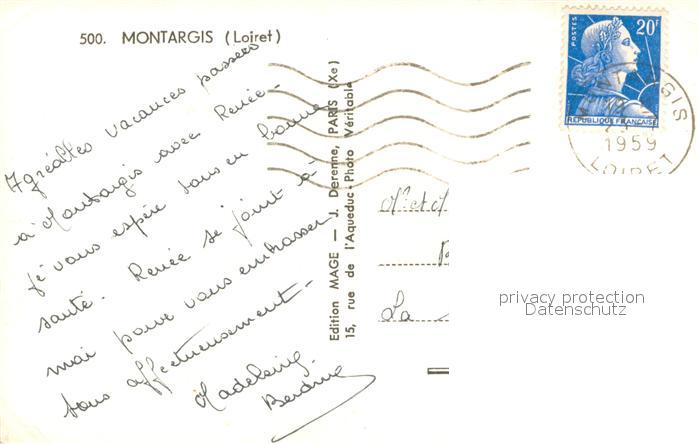 500. MONTARGIS (Loiret)
Agréables vacances passées
à Montargis avec Renée -
je vous espère tous en bonne
santé. Renée se joint à
moi pour vous embrasser
tous affectueusement -
Madeleine
Edition MAGE — J. Derenne, PARIS (Xe)
15, rue de l'Aqueduc - Photo Véritable
POSTES
20F
REPUBLIQUE FRANÇAISE
1959
LOIRET
Mr et M
La
privacy protection
Datenschutz